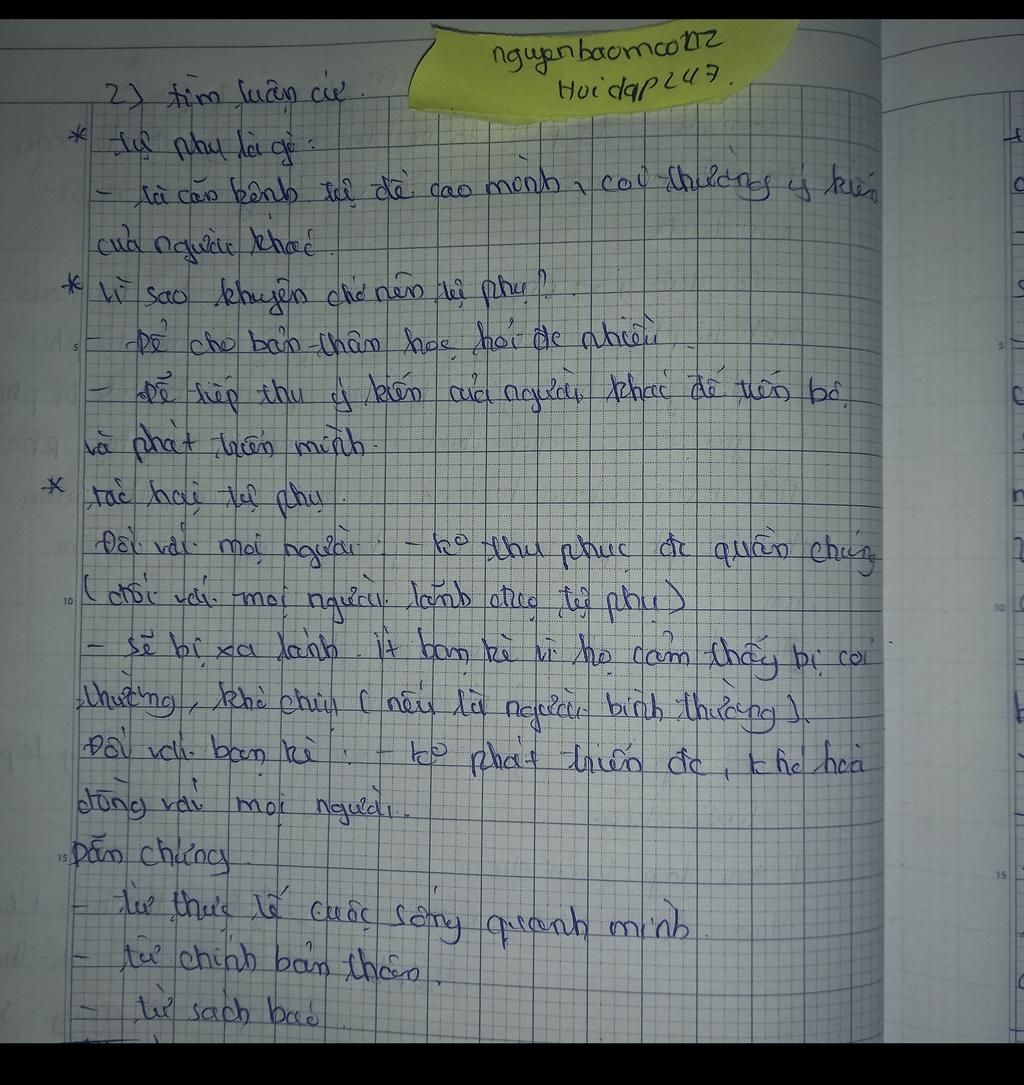 nguyenbaomco112
Hoidap247.
2) tìm luận cứ.
* tự phụ là gì:
- là căn bệnh tự đề cao mình, coi thường ý kiến
của người khác.
* Vì sao khuyên chớ nên tự phụ?
- Để cho bản thân học hỏi đc nhiều.
- Để tiếp thu ý kiến của người khác để tiến bộ
và phát triển mình.
* tác hại tự phụ.
Đối với mọi người: - ko thu phục đc quần chúng
(đối với mọi người lãnh đạo tự phụ)
- sẽ bị xa lánh. ít bạn bè vì họ cảm thấy bị coi
thường, khó chịu (nếu là người bình thường).
Đối với bạn bè: - ko phát triển đc, khó hoà
đồng với mọi người.
Dẫn chứng
- từ thực tế cuộc sống quanh mình.
- từ chính bản thân.
- từ sách báo